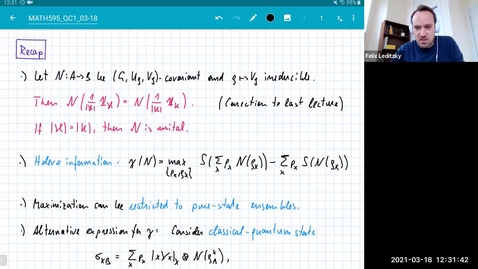 12:31
MATH595_QC1_03-18
Felix Leditzky
Recap
.) Let N: A→B be (G, U_g, V_g)-covariant and g↦V_g irreducible.
Then N(1/|H| 1_H) = N(1/|K| 1_K). (Correction to last lecture)
If |H| = |K|, then N is unital.
.) Holevo information: χ(N) = max_{{p_x, ρ_x}} S(∑_x p_x N(ρ_x)) − ∑_x p_x S(N(ρ_x))
.) Maximization can be restricted to pure-state ensembles.
.) Alternative expression for χ: Consider classical-quantum state
σ_XB = ∑_x p_x |x⟩⟨x|_X ⊗ N(ρ_A^x),
2021-03-18 12:31:42